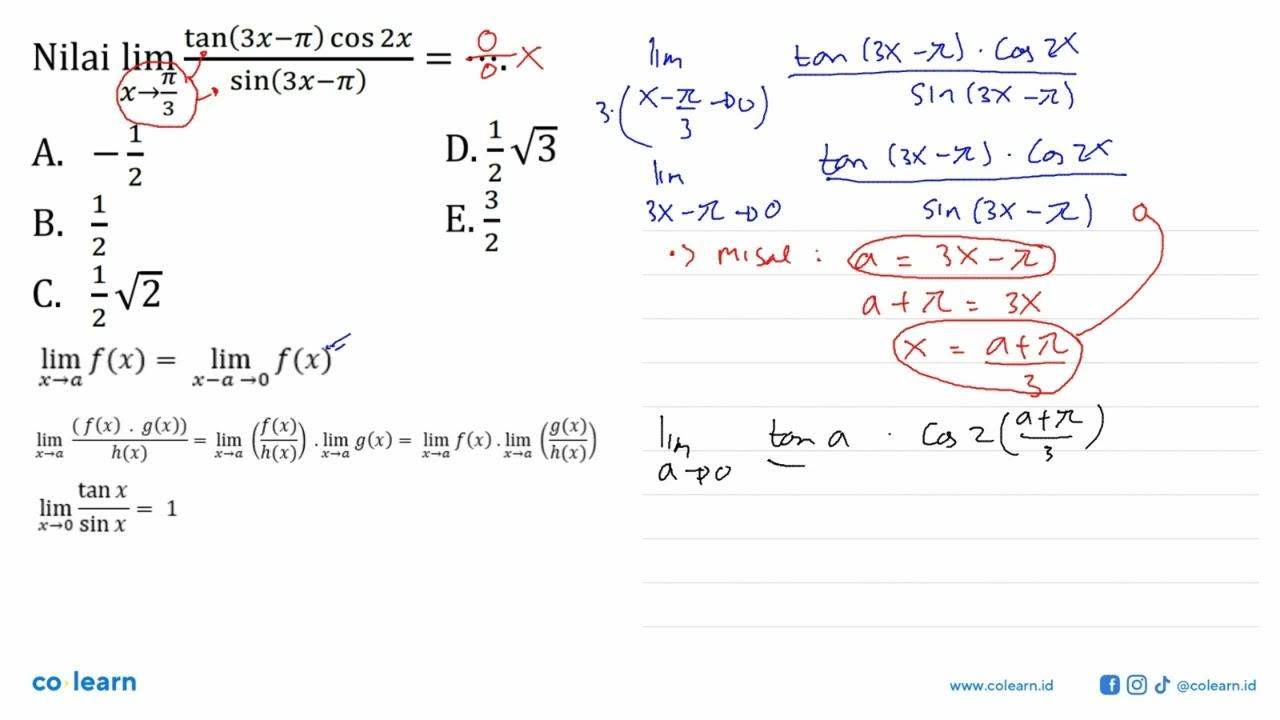 Nilai lim x→π/3 tan(3x−π) cos 2x / sin(3x−π) = ⋯. 0/0 X
A. −1/2
B. 1/2
C. 1/2 √2
D. 1/2 √3
E. 3/2
lim x→a f(x) = lim x−a →0 f(x)
lim x→a (f(x) . g(x)) / h(x) = lim x→a (f(x)/h(x)) . lim x→a g(x) = lim x→a f(x) . lim x→a (g(x)/h(x))
lim x→0 tan x / sin x = 1
lim 3·(x − π/3 → 0) tan (3x − π) · cos 2x / sin (3x − π)
lim 3x − π → 0 tan (3x − π) · cos 2x / sin (3x − π) a
misal : a = 3x − π
a + π = 3x
x = a + π / 3
lim a → 0 tan a · cos 2 (a + π / 3)
co learn
www.colearn.id
@colearn.id